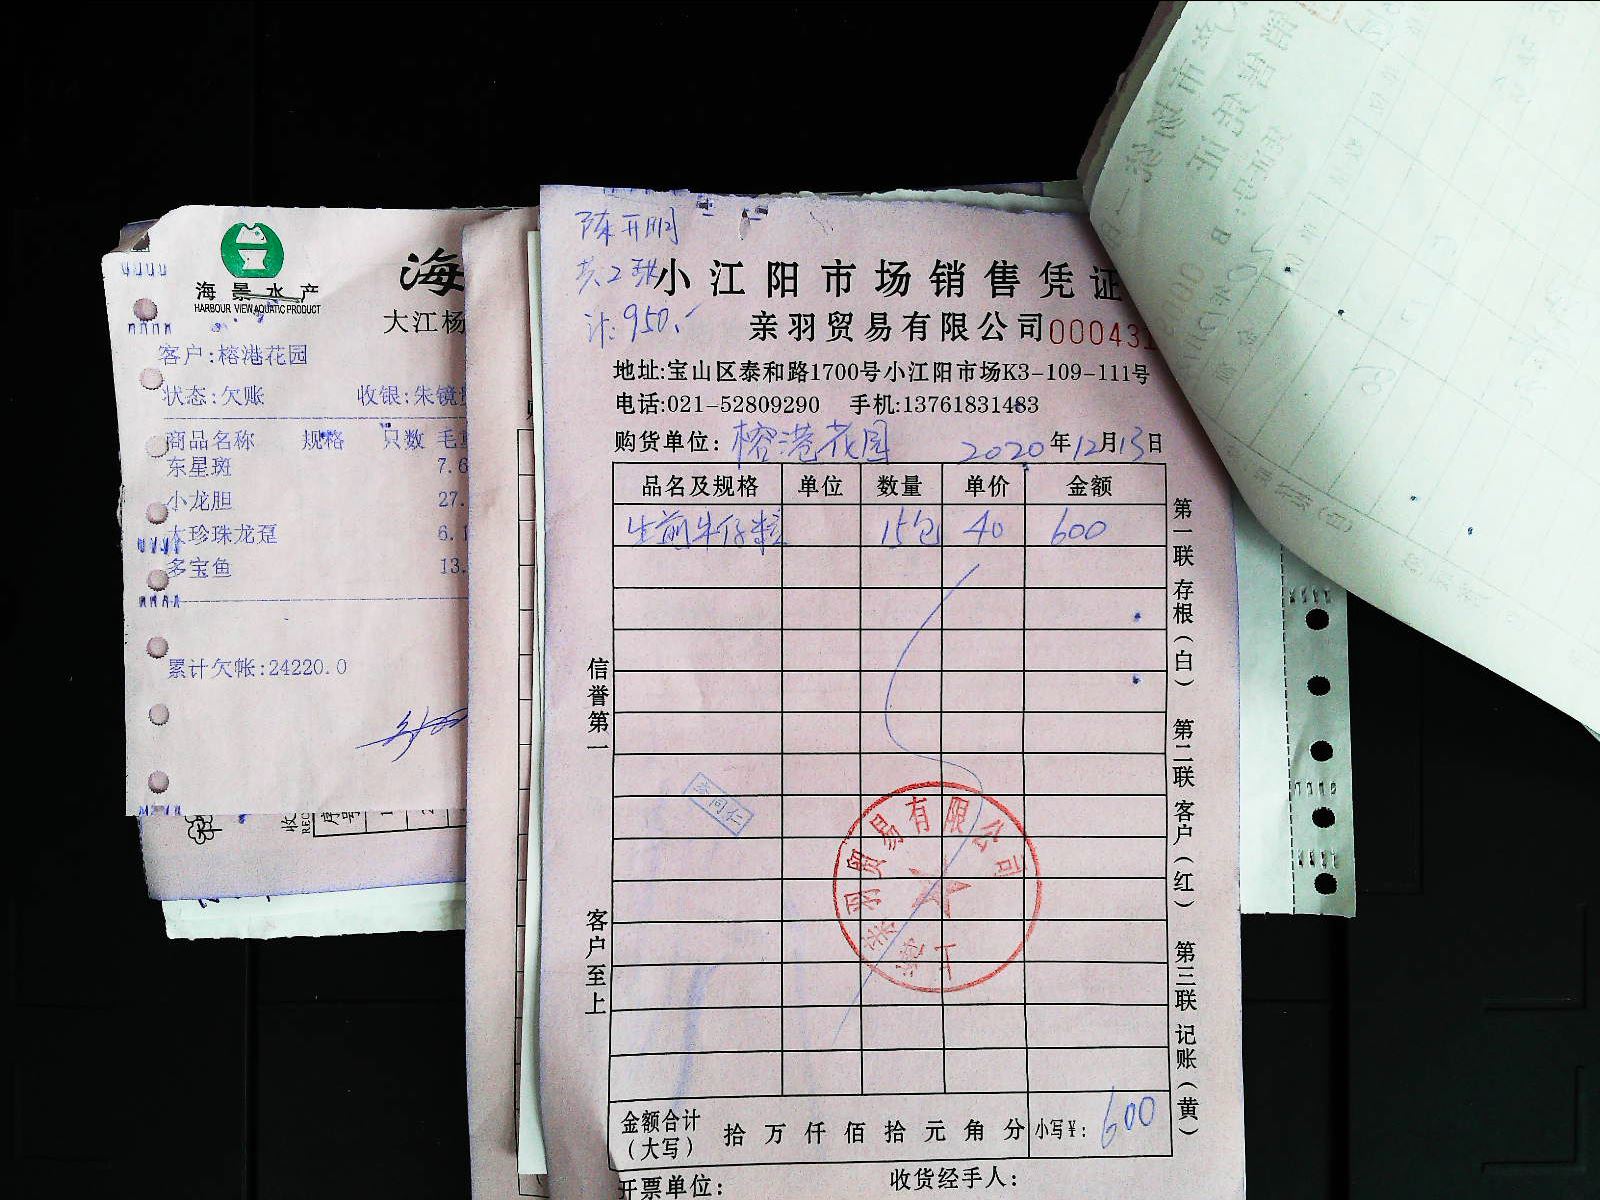 海景水产
HARBOUR VIEW AQUATIC PRODUCT
海
大江杨
客户:榕港花园
状态:欠账 收银:朱镜
商品名称 规格 只数 毛
东星斑 7.6
小龙胆 27.
大珍珠龙趸 6.
多宝鱼 13.
累计欠帐:24220.0
陈开明
共2张
计:950.-
小江阳市场销售凭证
亲羽贸易有限公司 000431
地址:宝山区泰和路1700号小江阳市场K3-109-111号
电话:021-52809290 手机:13761831483
购货单位: 榕港花园 2020年12月13日
品名及规格 单位 数量 单价 金额
生煎牛仔粒 15包 40 600
信誉第一
客户至上
第一联存根(白) 第二联客户(红) 第三联记账(黄)
贸易有限公司
金额合计(大写) 拾万仟佰拾元角分 小写¥: 600
开票单位: 收货经手人: